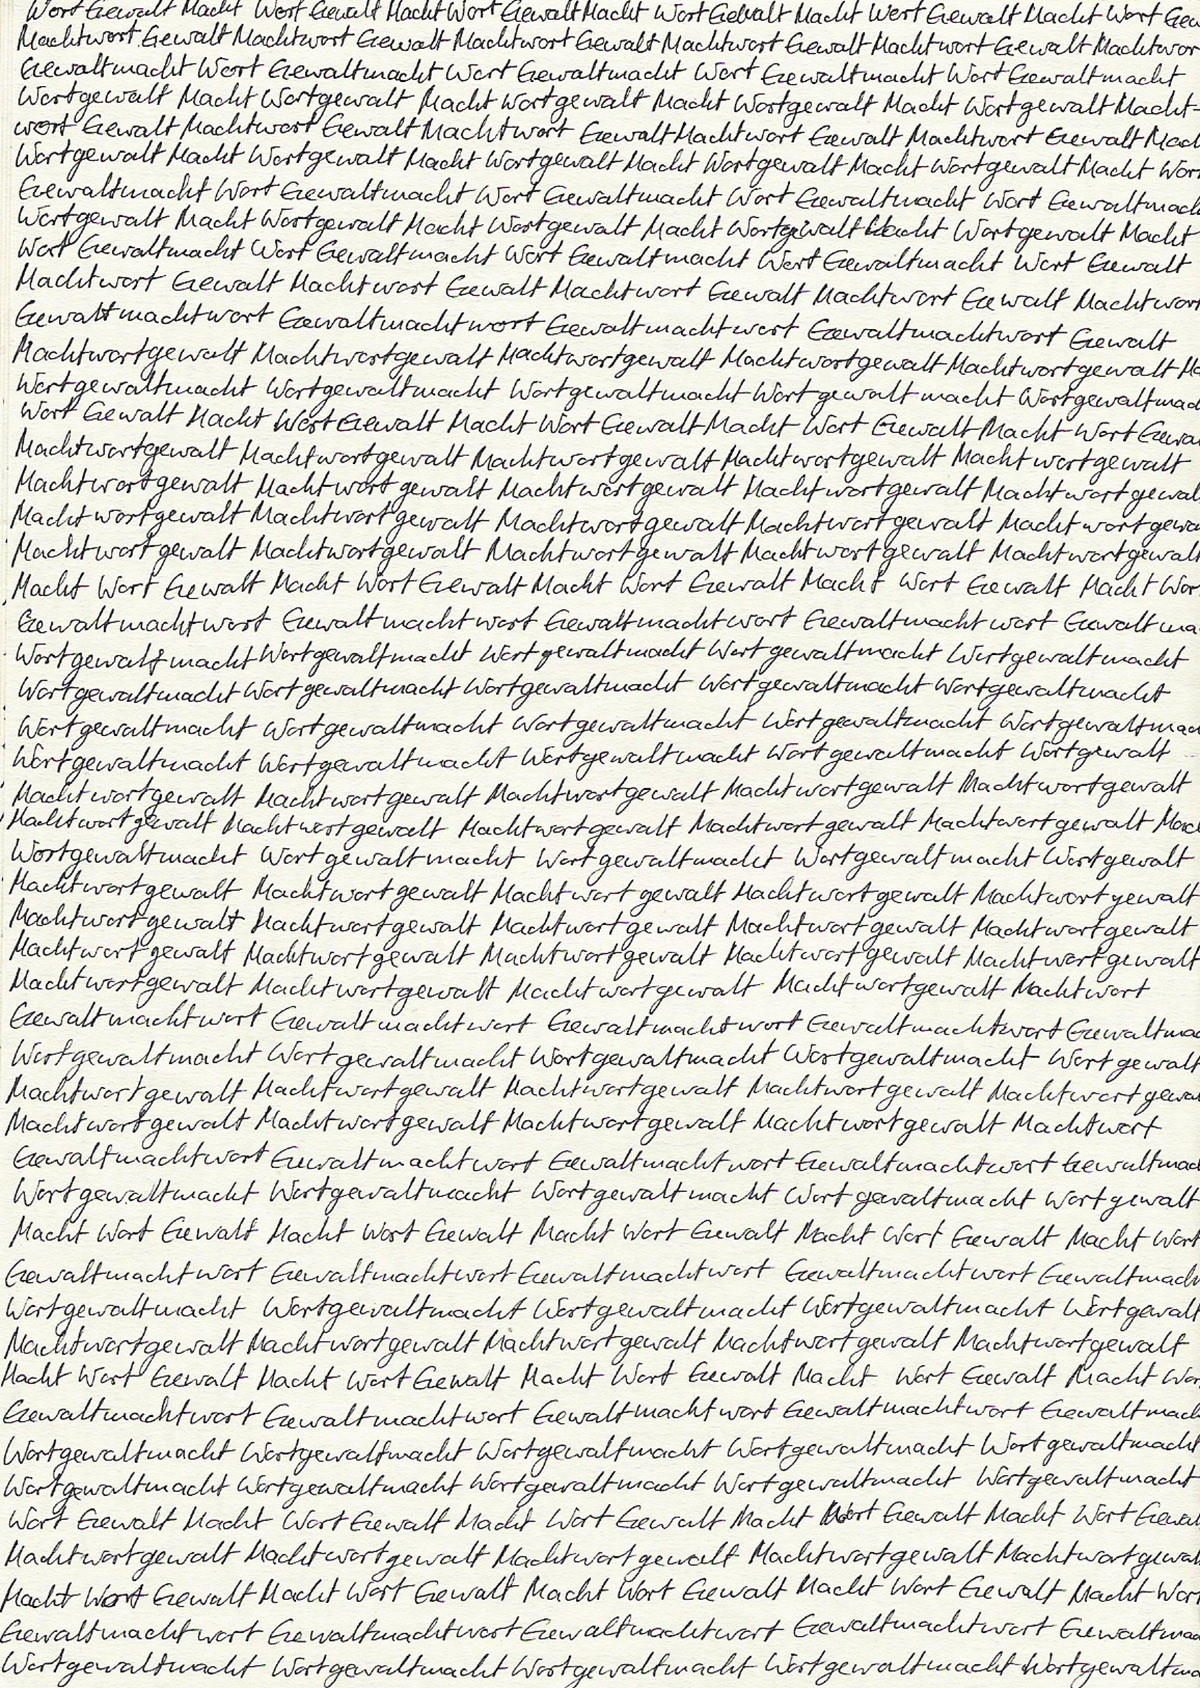 Wort Gewalt Macht Wort Gewalt Macht Wort Gewalt Macht Wort Gewalt Macht Wort Gewalt Macht Wort Gew
Machtwort Gewalt Machtwort Gewalt Machtwort Gewalt Machtwort Gewalt Machtwort Gewalt Machtwor
Gewaltmacht Wort Gewaltmacht Wort Gewaltmacht Wort Gewaltmacht Wort Gewaltmacht
Wortgewalt Macht Wortgewalt Macht Wortgewalt Macht Wortgewalt Macht Wortgewalt Macht-
wort Gewalt Machtwort Gewalt Machtwort Gewalt Machtwort Gewalt Machtwort Gewalt Mach
Wortgewalt Macht Wortgewalt Macht Wortgewalt Macht Wortgewalt Macht Wortgewalt Macht Wor
Gewaltmacht Wort Gewaltmacht Wort Gewaltmacht Wort Gewaltmacht Wort Gewaltmach
Wortgewalt Macht Wortgewalt Macht Wortgewalt Macht Wortgewalt Macht Wortgewalt Macht
Wort Gewaltmacht Wort Gewaltmacht Wort Gewaltmacht Wort Gewaltmacht Wort Gewalt
Machtwort Gewalt Machtwort Gewalt Machtwort Gewalt Machtwort Gewalt Machtwort
Gewaltmachtwort Gewaltmachtwort Gewaltmachtwort Gewaltmachtwort Gewalt
Machtwortgewalt Machtwortgewalt Machtwortgewalt Machtwortgewalt Machtwortgewalt Ma
Wortgewaltmacht Wortgewaltmacht Wortgewaltmacht Wortgewaltmacht Wortgewaltmac
Wort Gewalt Macht Wort Gewalt Macht Wort Gewalt Macht Wort Gewalt Macht Wort Gewa
Machtwortgewalt Machtwortgewalt Machtwortgewalt Machtwortgewalt Machtwortgewalt
Machtwortgewalt Machtwortgewalt Machtwortgewalt Machtwortgewalt Machtwortgewal
Machtwortgewalt Machtwortgewalt Machtwortgewalt Machtwortgewalt Machtwortgewa
Machtwortgewalt Machtwortgewalt Machtwortgewalt Machtwortgewalt Machtwortgewalt
Macht Wort Gewalt Macht Wort Gewalt Macht Wort Gewalt Macht Wort Gewalt Macht Wor
Gewaltmachtwort Gewaltmachtwort Gewaltmachtwort Gewaltmachtwort Gewaltma
Wortgewaltmacht Wortgewaltmacht Wortgewaltmacht Wortgewaltmacht Wortgewaltmacht
Wortgewaltmacht Wortgewaltmacht Wortgewaltmacht Wortgewaltmacht Wortgewaltmacht
Wortgewaltmacht Wortgewaltmacht Wortgewaltmacht Wortgewaltmacht Wortgewaltmac
Wortgewaltmacht Wortgewaltmacht Wortgewaltmacht Wortgewaltmacht Wortgewalt
Machtwortgewalt Machtwortgewalt Machtwortgewalt Machtwortgewalt Machtwortgewalt
Machtwortgewalt Machtwortgewalt Machtwortgewalt Machtwortgewalt Machtwortgewalt Mac
Wortgewaltmacht Wortgewaltmacht Wortgewaltmacht Wortgewaltmacht Wortgewalt
Machtwortgewalt Machtwortgewalt Machtwortgewalt Machtwortgewalt Machtwortgewalt
Machtwortgewalt Machtwortgewalt Machtwortgewalt Machtwortgewalt Machtwortgewalt
Machtwortgewalt Machtwortgewalt Machtwortgewalt Machtwortgewalt Machtwortgewalt
Machtwortgewalt Machtwortgewalt Machtwortgewalt Machtwortgewalt Machtwort
Gewaltmachtwort Gewaltmachtwort Gewaltmachtwort Gewaltmachtwort Gewaltma
Wortgewaltmacht Wortgewaltmacht Wortgewaltmacht Wortgewaltmacht Wortgewalt
Machtwortgewalt Machtwortgewalt Machtwortgewalt Machtwortgewalt Machtwortgewa
Machtwortgewalt Machtwortgewalt Machtwortgewalt Machtwortgewalt Machtwort
Gewaltmachtwort Gewaltmachtwort Gewaltmachtwort Gewaltmachtwort Gewaltmac
Wortgewaltmacht Wortgewaltmacht Wortgewaltmacht Wortgewaltmacht Wortgewalt
Macht Wort Gewalt Macht Wort Gewalt Macht Wort Gewalt Macht Wort Gewalt Macht Wort
Gewaltmachtwort Gewaltmachtwort Gewaltmachtwort Gewaltmachtwort Gewaltmach
Wortgewaltmacht Wortgewaltmacht Wortgewaltmacht Wortgewaltmacht Wortgewalt
Machtwortgewalt Machtwortgewalt Machtwortgewalt Machtwortgewalt Machtwortgewalt
Macht Wort Gewalt Macht Wort Gewalt Macht Wort Gewalt Macht Wort Gewalt Macht Wor
Gewaltmachtwort Gewaltmachtwort Gewaltmachtwort Gewaltmachtwort Gewaltmach
Wortgewaltmacht Wortgewaltmacht Wortgewaltmacht Wortgewaltmacht Wortgewaltmacht
Wortgewaltmacht Wortgewaltmacht Wortgewaltmacht Wortgewaltmacht Wortgewaltmacht
Wort Gewalt Macht Wort Gewalt Macht Wort Gewalt Macht Wort Gewalt Macht Wort Gewal
Machtwortgewalt Machtwortgewalt Machtwortgewalt Machtwortgewalt Machtwortgewal
Macht Wort Gewalt Macht Wort Gewalt Macht Wort Gewalt Macht Wort Gewalt Macht Wort
Gewaltmachtwort Gewaltmachtwort Gewaltmachtwort Gewaltmachtwort Gewaltmac
Wortgewaltmacht Wortgewaltmacht Wortgewaltmacht Wortgewaltmacht Wortgewaltma